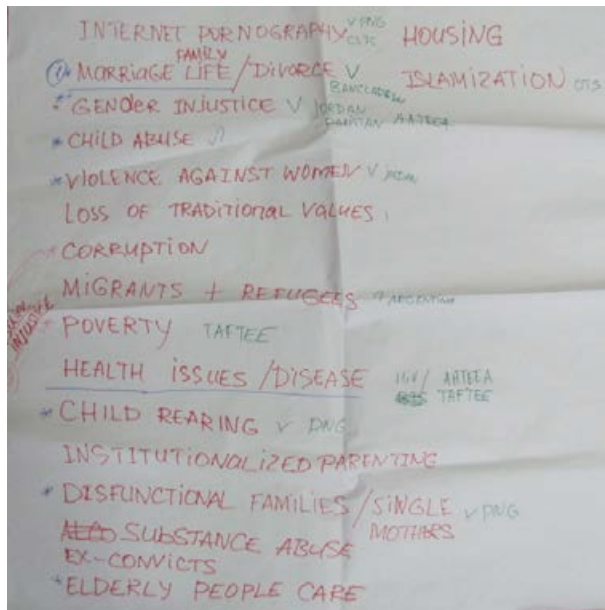 INTERNET PORNOGRAPHY V PNG CSTC HOUSING
FAMILY
1 MARRIAGE LIFE / DIVORCE V ISLAMIZATION OTS
BANGLADESH
GENDER INJUSTICE V JORDAN
PAKISTAN AATEEA
* CHILD ABUSE
* VIOLENCE AGAINST WOMEN V
LOSS OF TRADITIONAL VALUES
* CORRUPTION
MIGRANTS + REFUGEES ARGENTINA
INJUSTICE
POVERTY TAFTEE
HEALTH ISSUES / DISEASE / AATEEA
TAFTEE
* CHILD REARING V PNG
INSTITUTIONALIZED PARENTING
* DISFUNCTIONAL FAMILIES / SINGLE V PNG
MOTHERS
SUBSTANCE ABUSE
EX-CONVICTS
* ELDERLY PEOPLE CARE